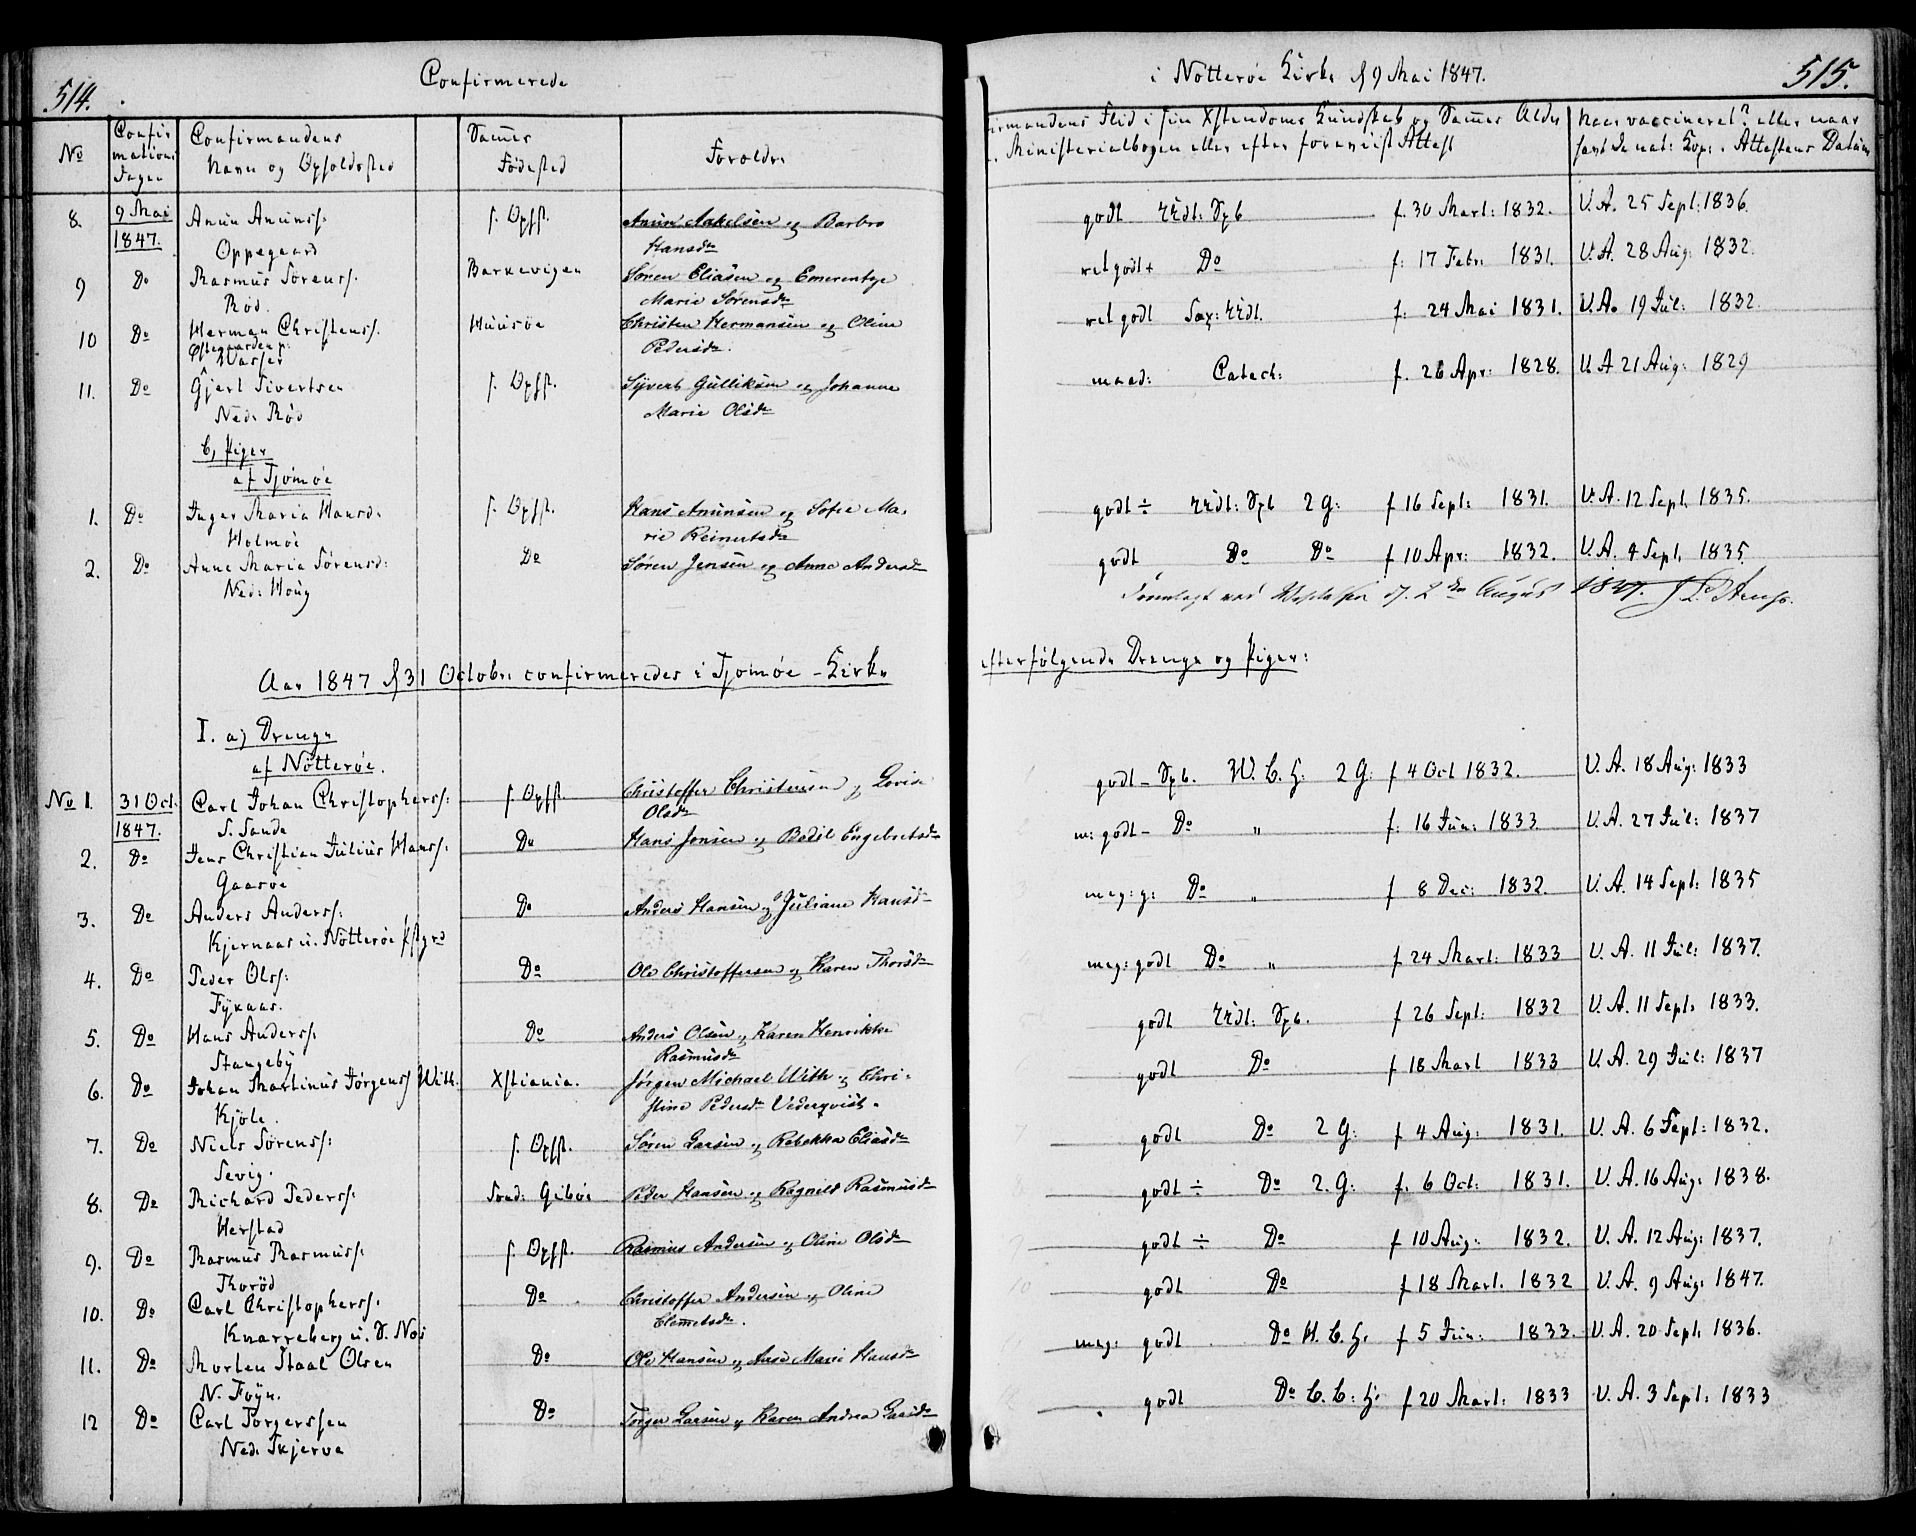 514.
Confirmerede
No
Confir
mations
Dagen
Confirmandens
Navn og Opholdsted
Sammes
Fødested
Forældre
8.
9 Mai
1847.
Anun Anunss.
Oppegaard
s. Opfst.
Anun Aakelsen og Barbro
Hansdr
9
Do
Rasmus Sørenss.
Rød.
Barkevigen
Søren Eliasen og Emerentze
Marie Sørensdr
10
Do
Herman Christenss.
Østegaarden p.
Vasser
Huusøe
Christen Hermansen og Oline
Pedersdr.
11.
Do
Gjert Sivertsen
Ned. Rød
s. Opfst.
Syvert Gulliksen og Johanne
Marie Olsdr
b, Piger
af Tjømøe
1.
Do
Inger Maria Hansd.
Holmøe
s. Opfst.
Hans Anunsen og Sofie Ma-
rie Reinertsdr
2.
Do
Anne Maria Sørensd:
Ned: Houg
Do
Søren Jensen og Anne Andersdr
Aar 1847 d 31 Octobr: confirmeredes i Tjømøe-Kirke
I. a) Drenge
af Nøtterøe.
No 1.
31 Oct.
1847.
Carl Johan Christopherss:
S. Sande
s. Opfst.
Christoffer Christensen og Lovise
Olsdr
2.
Do
Jens Christian Julius Hanss:
Gaasøe
Do
Hans Jensen og Bodil Engebretsdr
3.
Do
Anders Anderss:
Kjernaas u. Nøtterøe Pstgrd
Do
Anders Hansen og Juliane Hansdr
4.
Do
Peder Olss:
Fynaas.
Do
Ole Christoffersen og Karen Thorsdr
5.
Do
Hans Anderss:
Stangeby
Do
Anders Olsen og Karen Henrikke
Rasmusdr
6.
Do
Johan Martinus Jørgenss With.
Kjøle.
Xstiania.
Jørgen Michael With og Chri-
stine Pedersdr Vederqvist.
7.
Do
Niels Sørenss:
Sevig.
s. Opfst.
Søren Larsen og Rebekka Eliasdr
8.
Do
Richard Pederss:
Herstad
Sond: Gibøe
Peder Hansen og Ragnild Rasmusdr
9.
Do
Rasmus Rasmuss:
Thorød
s. Opfst.
Rasmus Andersen og Oline Olsdr
10.
Do
Carl Christopherss:
Knarreberg u. S. Nøs
Do
Christoffer Andersen og Oline
Clemetsdr.
11.
Do
Morten Staal Olsen
N. Føyn.
Do
Ole Hansen og Anne Marie Hansdr
12
Do
Carl Torgerssen
Ned: Skjerve
Do
Torger Larsen og Karen Andrea Larsdr
i Nøtterøe Kirke d 9 Mai 1847.
515.
irmandens Flid i sin Xstendoms Kundskab og Sammes Alder
Ministerialbogen eller efter foreviist Attest
Naar vaccineret? eller naar
havt de nat: Kop: Attestens Datum
godt rædl: Spb f. 30 Mart: 1832. V.A. 25 Sept: 1836.
ret godt + Do f: 17 Febr: 1831. V.A. 28 Aug: 1832.
ret godt Sax: rædl. f: 24 Mai 1831. V.A. 19 Jul: 1832
maad: Catech: f. 26 Apr: 1828. V.A 21 Aug: 1829
godt ÷ rædl: Spb 2 G: f 16 Sept: 1831. V.A. 12 Sept. 1835.
godt Do Do f 10 Apr: 1832. V.A. 4 Sept. 1835.
d. 2den August 1847.
efterfølgende Drenge og Piger:
godt - Spb. W. B. H: 2 G: f 4 Oct 1832. V.A. 18 Aug: 1833
m: godt - Do „ f: 16 Jun: 1833. V.A. 27 Jul: 1837
meg: g: Do „ f 8 Dec: 1832. V.A. 14 Sept: 1835
meg: godt Do „ f 24 Mart: 1833 V.A. 11 Jul: 1837.
godt rædl: Spb. f 26 Sept: 1832 V.A. 11 Sept: 1833.
godt Do f 18 Mart 1833 V.A. 29 Jul: 1837
godt Do 2 G: f 4 Aug: 1831. V.A. 6 Sept: 1832.
godt ÷ Do 2. G: f. 6 Oct: 1831. V.A. 16 Aug: 1838.
godt ÷ Do f 10 Aug: 1832. V.A. 12 Aug: 1837.
godt Do f 18 Mart. 1832 V.A. 9 Aug: 1847.
meg: godt Do H. B. H. f 5 Jun: 1833. V.A. 20 Sept. 1836.
godt Do B. B: H: f 20 Mart: 1833 V.A. 3 Sept: 1833